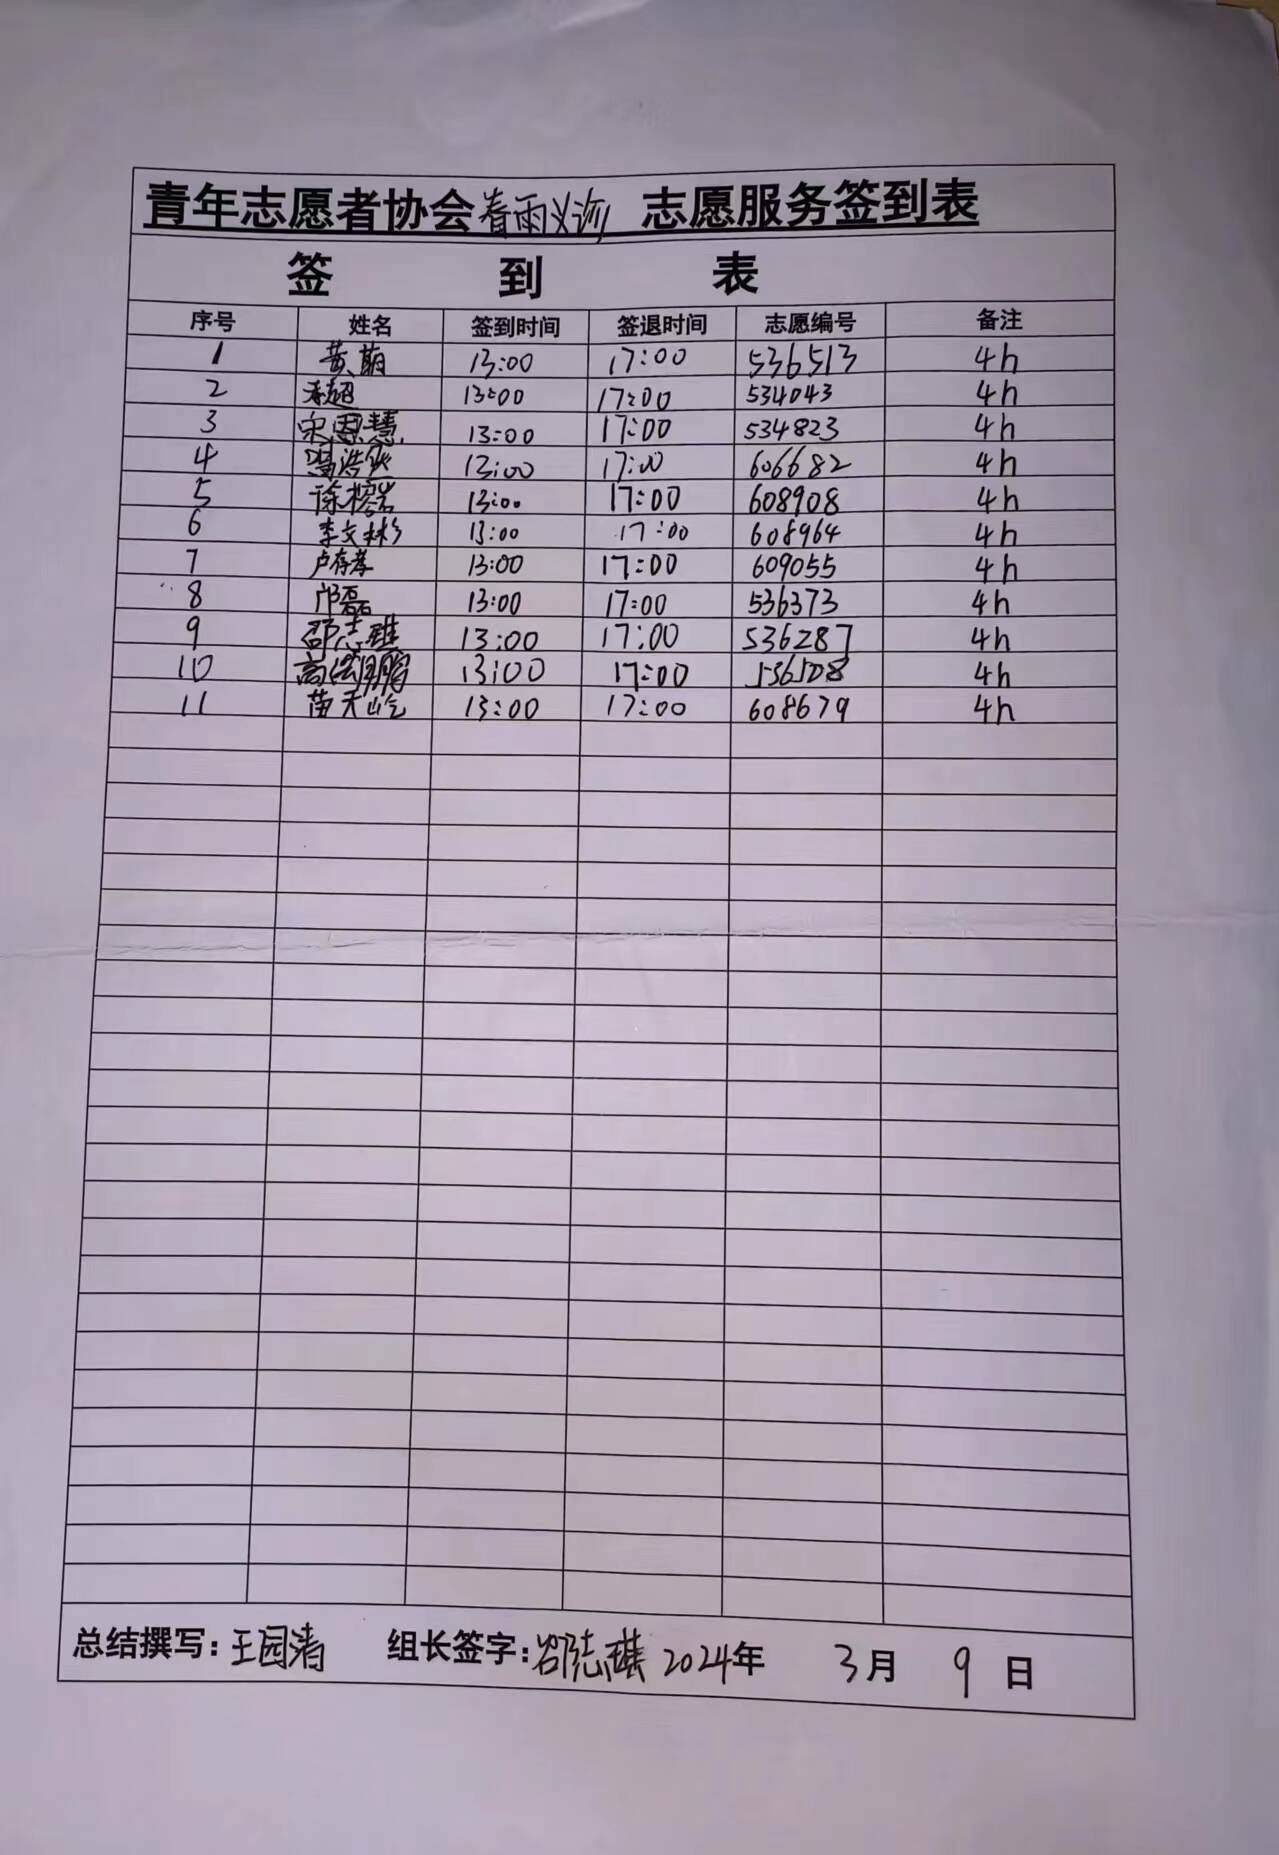 青年志愿者协会春雨义诊 志愿服务签到表
签 到 表
序号 姓名 签到时间 签退时间 志愿编号 备注
1 黄萌 13:00 17:00 536513 4h
2 13:00 17:00 534043 4h
3 宋恩慧 13:00 17:00 534823 4h
4 13:00 17:00 606682 4h
5 徐榕岩 13:00 17:00 608908 4h
6 李文彬 13:00 17:00 608964 4h
7 卢存孝 13:00 17:00 609055 4h
8 邝磊 13:00 17:00 536373 4h
9 邵志琪 13:00 17:00 536287 4h
10 13:00 17:00 4h
11 苗天屹 13:00 17:00 608679 4h
总结撰写:王园清 组长签字:邵志琪 2024年 3月 9日